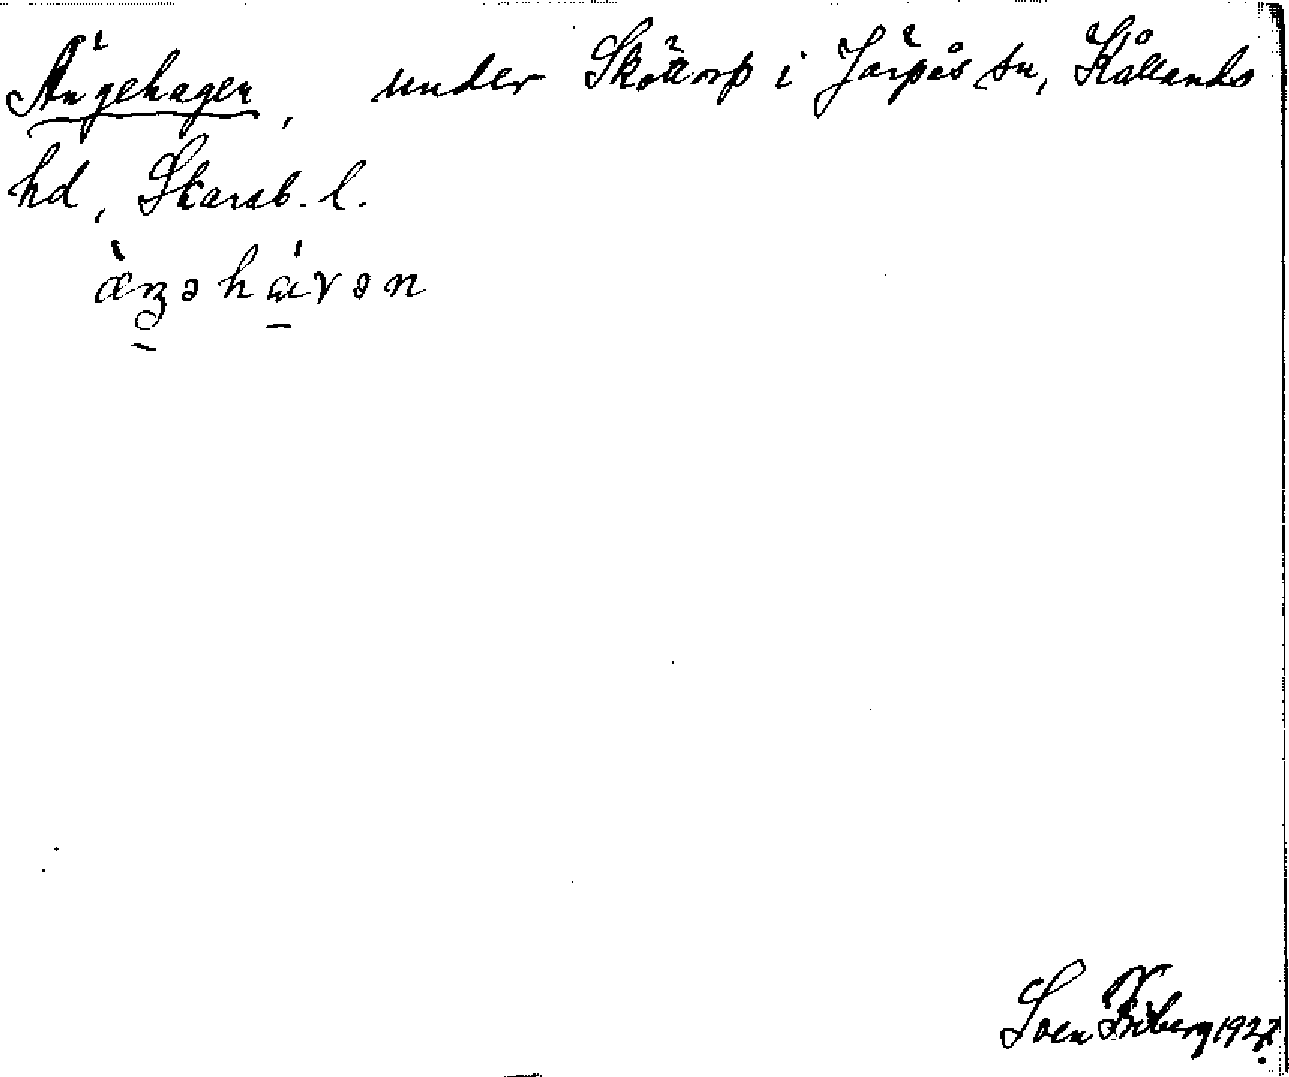 Ängehagen, under Sköttorp i Järpås sn, Kållands
hd, Skarab. l.
ä̀ŋəháγən
Sven Friberg 1927.